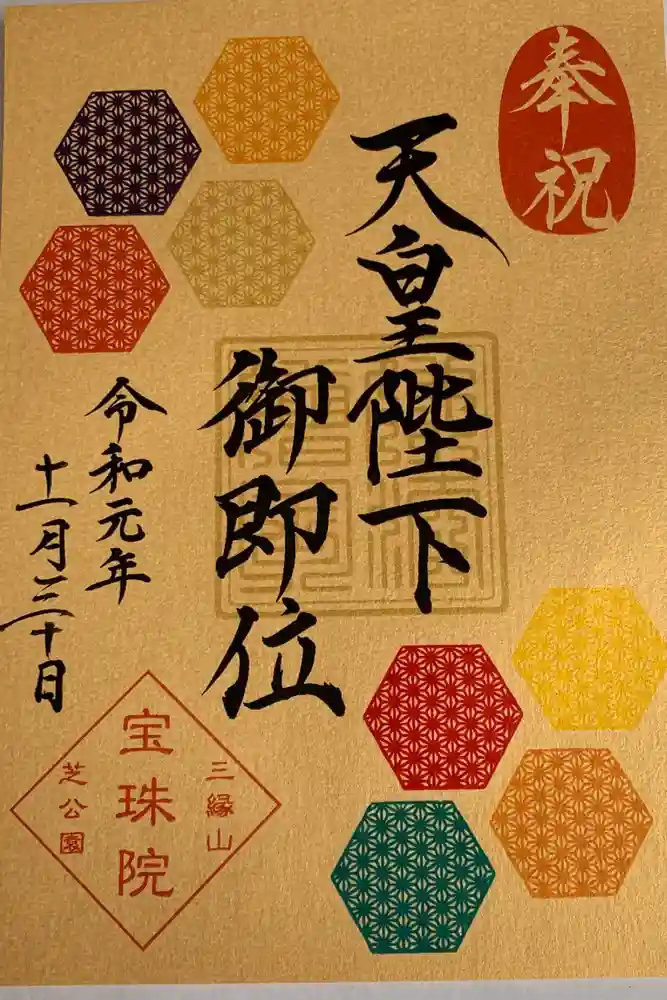 奉祝
天皇陛下
御即位
令和元年
十一月三十日
三縁山
宝珠院
芝公園